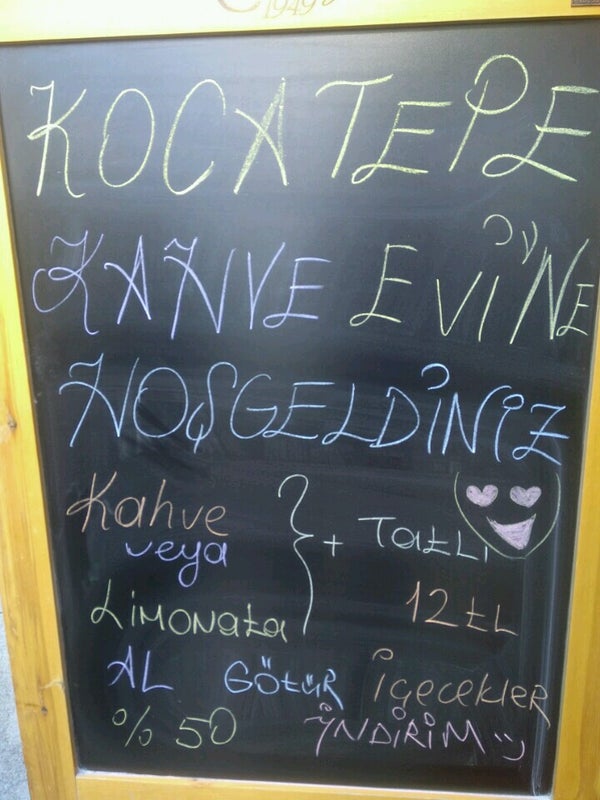 1949
KOCATEPE
KAHVE EVİNE
HOŞGELDİNİZ
Kahve
veya
Limonata
+ Tatlı
12 tL
AL GÖtÜR İçecekler
% 50 İNDİRİM :)